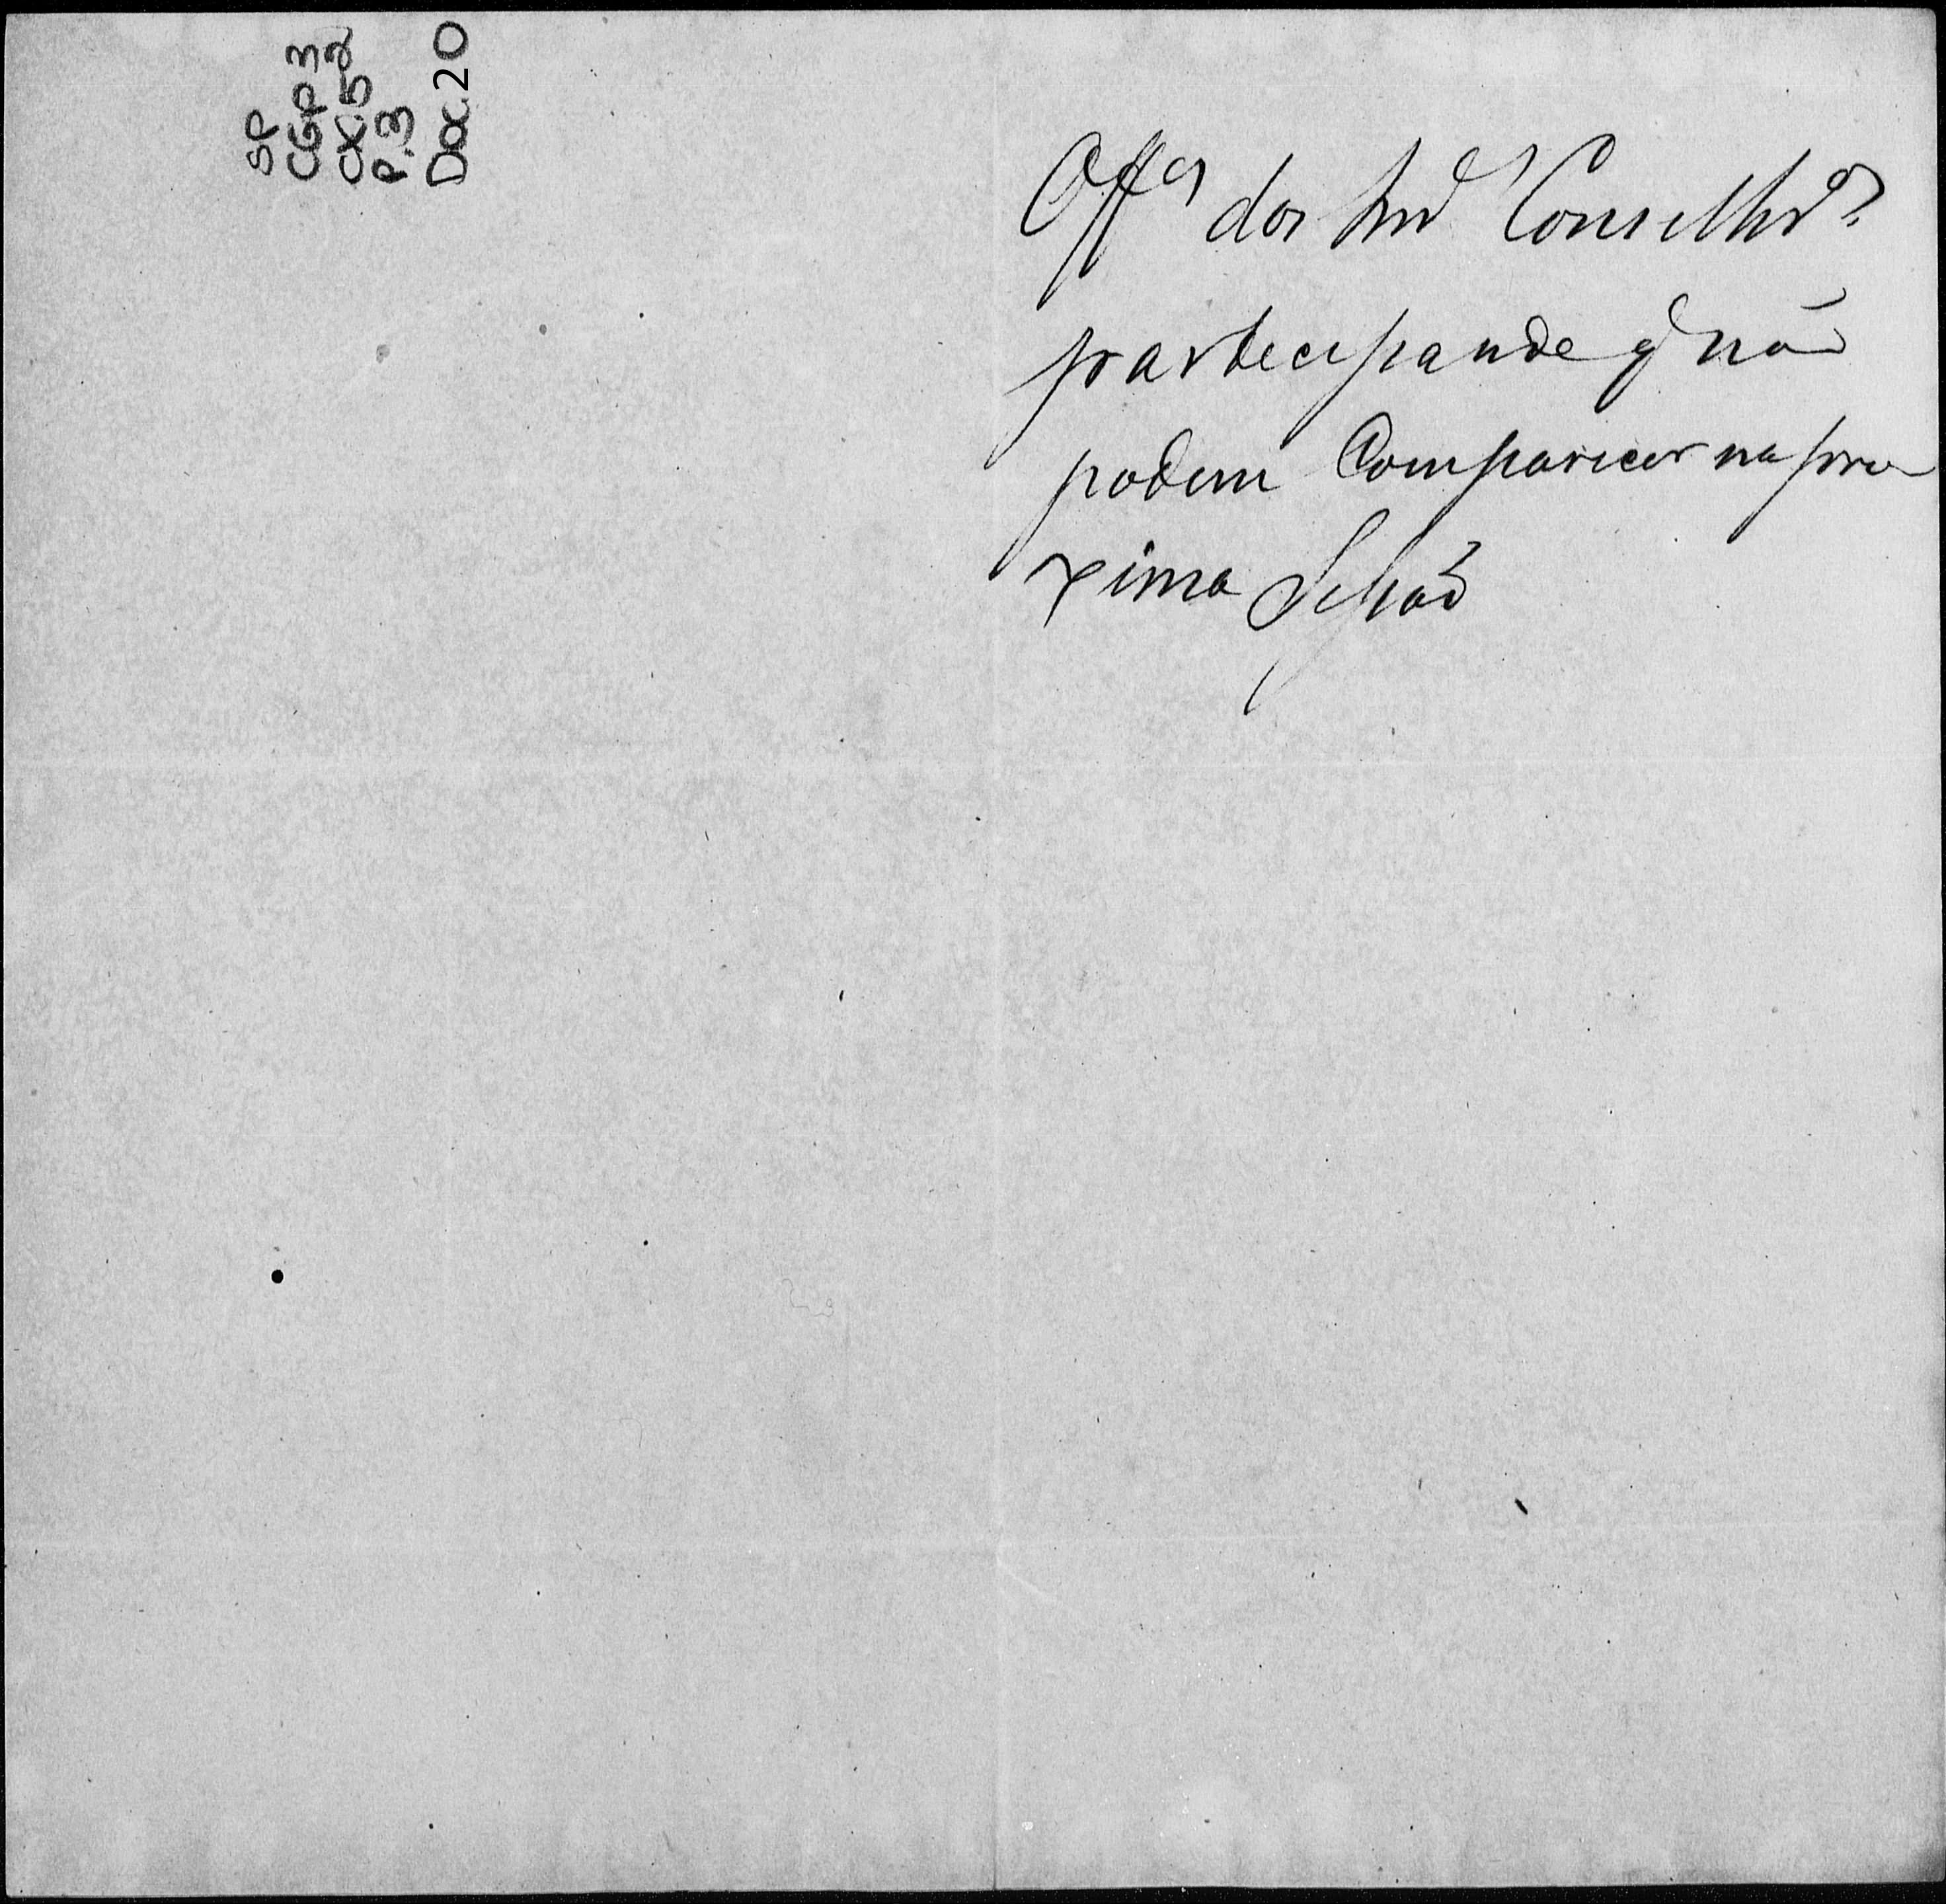 SP
CGP 3
CX. 52
P. 3
Doc. 20
Offos dos Conselhros
partecipando q não
podem Comparecer na pro
xima Sessão